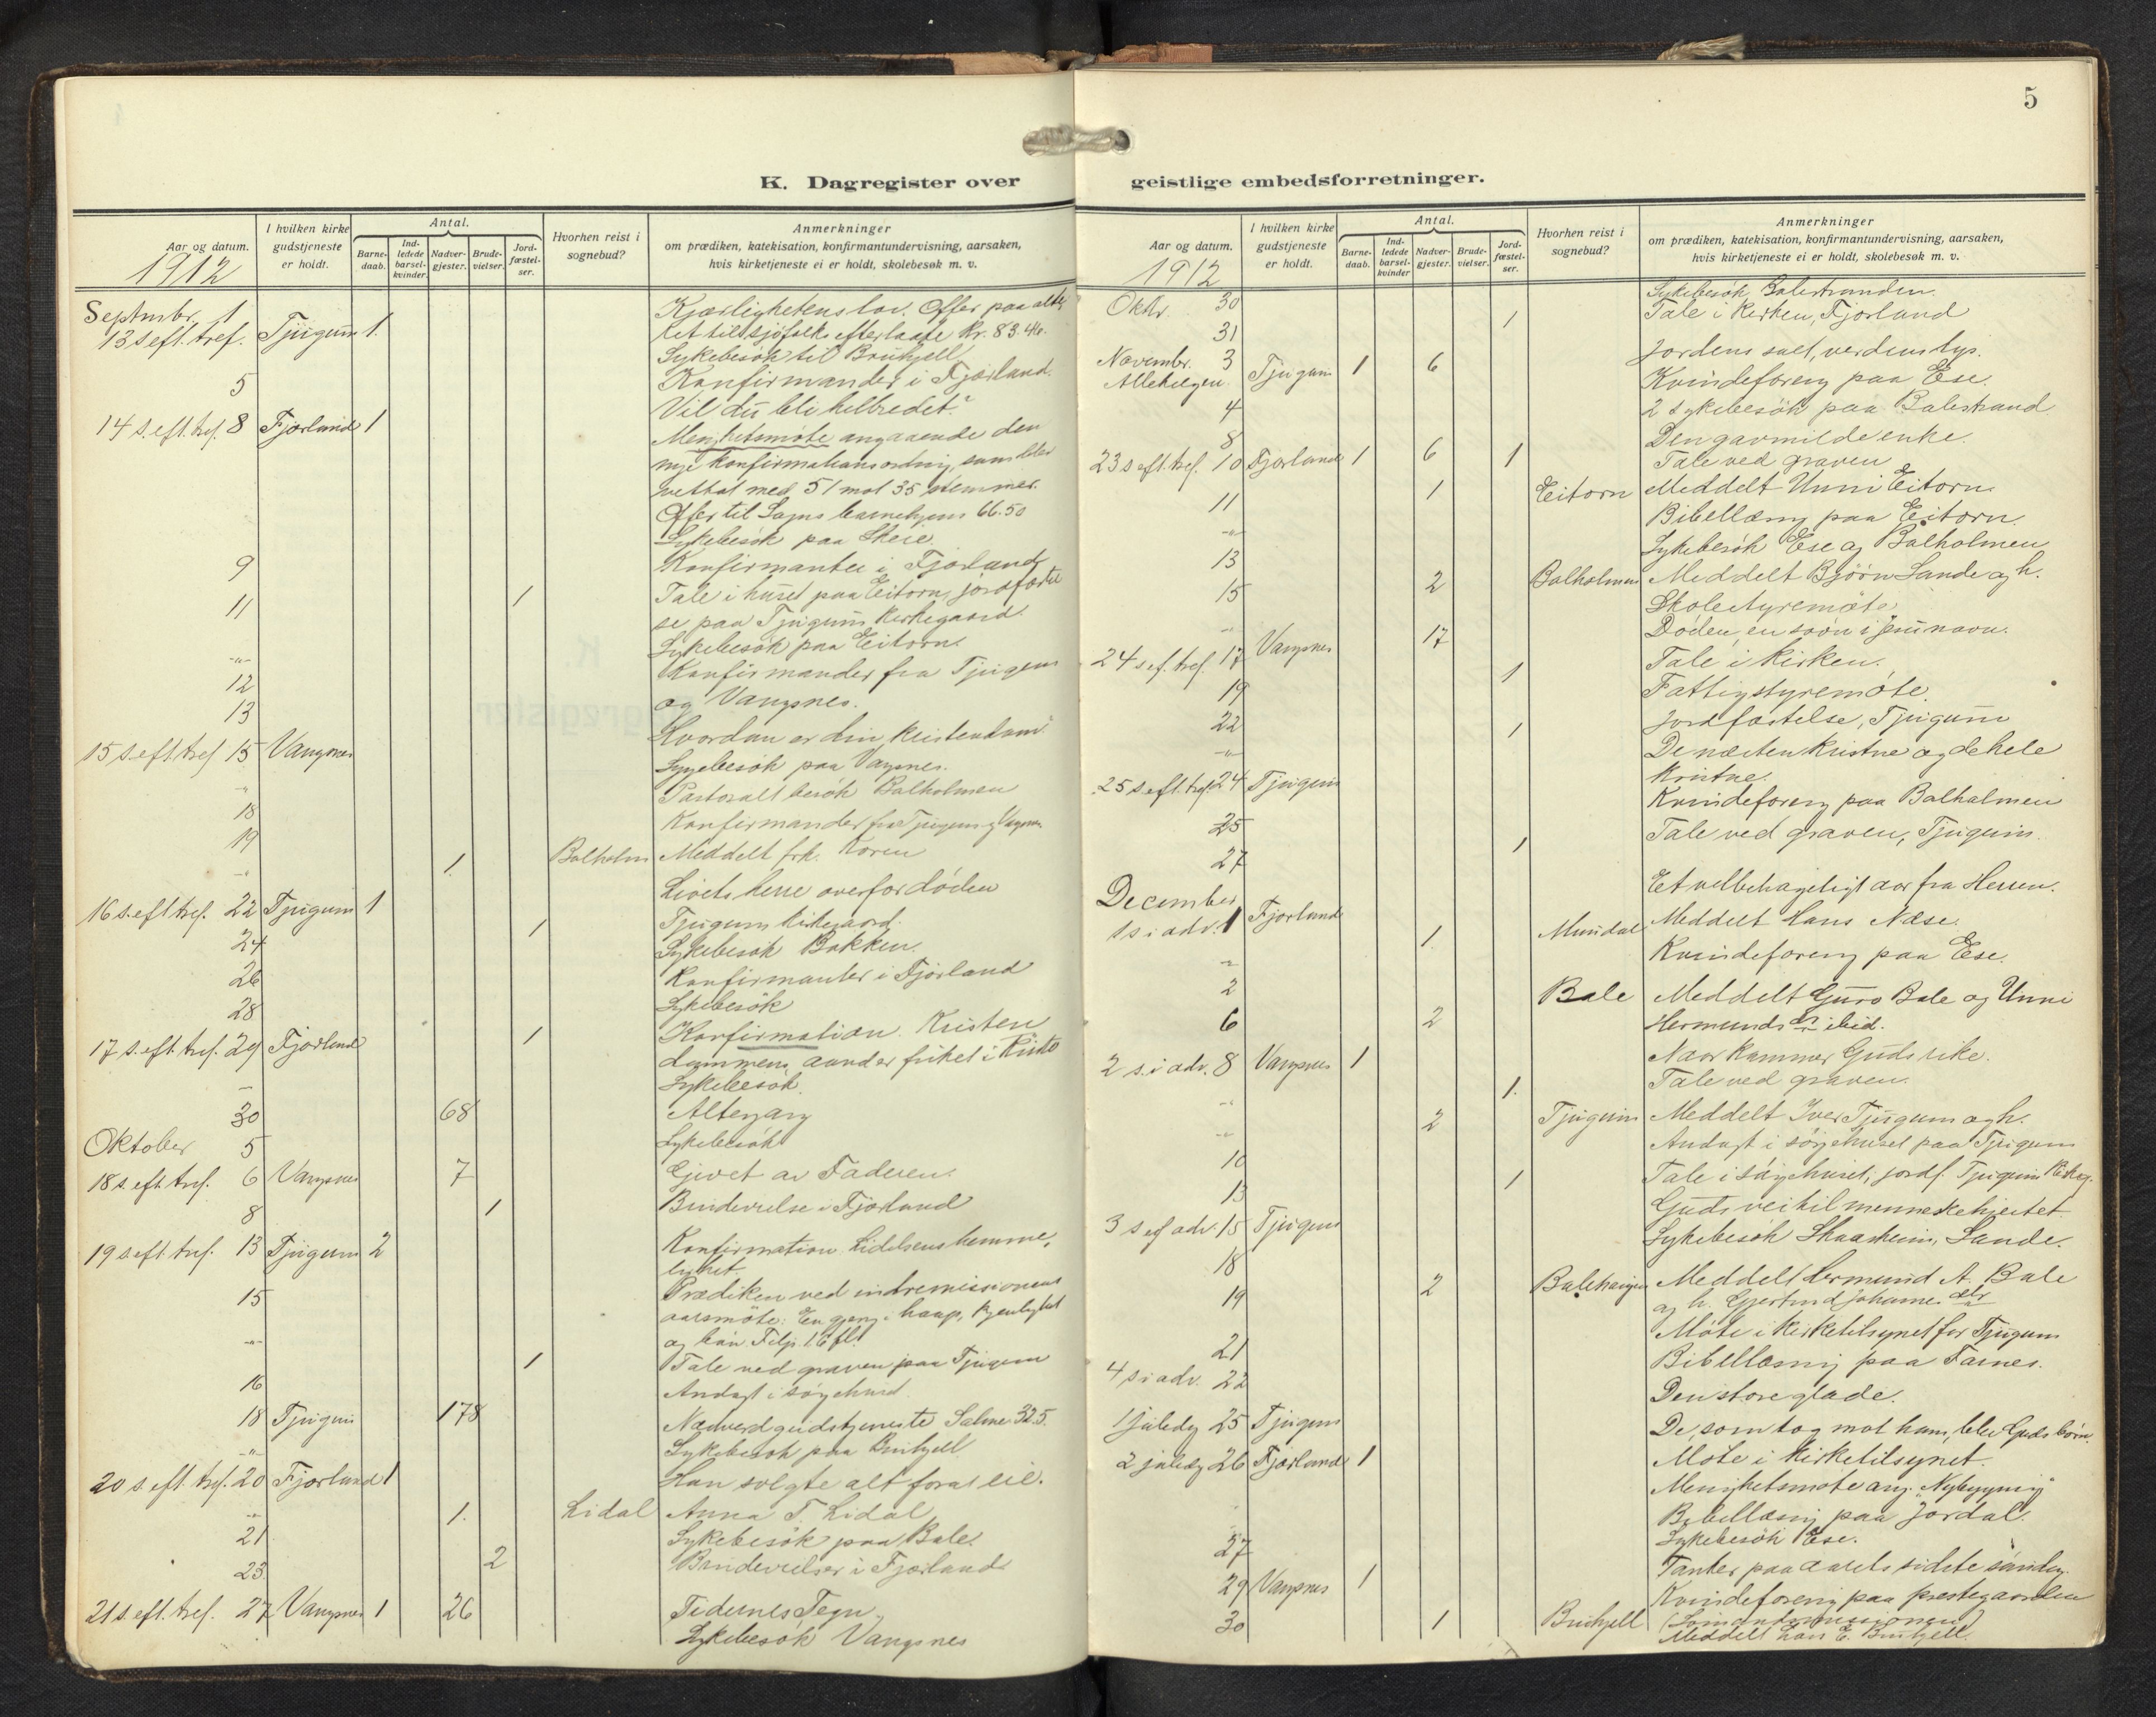 K. Dagregister over
Aar og datum.
1912
I hvilken kirke gudstjeneste er holdt.
Antal.
Barne-daab.
Ind-ledede barsel-kvinder.
Nadver-gjester.
Brude-vielser.
Jord-fæstel-ser.
Hvorhen reist i sognebud?
Anmerkninger
om prædiken, katekisation, konfirmantundervisning, aarsaken,
hvis kirketjeneste ei er holdt, skolebesøk m. v.
Septmbr. 1
13 s eft. tref. Tjugum 1. Kjærlighetens lov. Offer paa alte-
ret til sjøfolks efterlatte Kr. 83.46.
Sykebesøk til Bruhjell
5 Konfirmander i Fjærland.
14 s. eft. tref. 8 Fjærland 1 Vil du bli helbredet?
Menighetsmøte angaaende den
nye konfirmationsordning, som blev
vettat med 51 mot 35 stemmer.
Offer til Sogns barnehjem 66.50
Sykebesøk paa Skeie.
9 Konfirmanter i Fjærland
11 1 Tale i huset paa Eitorn, jordfæstel
se paa Tjugum Kirkegaard.
-"- Sykebesøk paa Eitorn.
12 Konfirmander fra Tjugum
13 og Vangsnes.
15 s. eft. tref 15 Vangsnes Hvordan er din kristendom?
Sygebesøk paa Vangsnes.
" Pastoralt besøk Balholmen
18 Konfirmander fra Tjugum og Vangsnes
19
-"- 1. Balholm Meddelt frk. Koren
16 s. eft tref. 22 Tjugum 1 Livets herre overfor døden
24 1 Tjugum kirkegaard.
26 Sykebesøk Bakken.
28 Konfirmanter i Fjærland
Sykebesøk
17 s. eft. tref. 29 Fjærland 1 Konfirmation. Kristen
dommens aand er frihet i Kristo
- Sykebesøk.
30 68 Altergang
Oktober 5 Sykebesøk
18 s. eft. tref. 6 Vangsnes 7 Givet av Faderen.
8 1 Brudevielse i Fjærland
19 s eft. tref. 13 Tjugum 2 Konfirmation. Lidelsens hemme-
lighet.
15 Prædiken ved indremissionens
aarsmøte: En gjeng i haap, kjærlighet
og bøn Filip. 1.6 fl.
-"- 1 Tale ved graven paa Tjugum
16 Andagt i sørgehuset.
18 Tjugum 178 Nadverdgudstjeneste Salme 325.
-"- Sykebesøk paa Bruhjell
20 s. eft. tref. 20 Fjærland 1 Han solgte alt for at eie.
-"- 1. Lidal Anna T. Lidal
21 Sykebesøk paa Bale.
23 2 Brudevielser i Fjærland
21 s. eft. tref. 27 Vangsnes 1 26 Tidernes Tegn.
Sykebesøk Vangsnes
5
geistlige embedsforretninger.
Aar og datum.
1912
I hvilken kirke gudstjeneste er holdt.
Antal.
Barne-daab.
Ind-ledede barsel-kvinder
Nadver-gjester.
Brude-vielser.
Jord-fæstel-ser.
Hvorhen reist i sognebud?
Anmerkninger
om prædiken, katekisation, konfirmantundervisning, aarsaken,
hvis kirketjeneste ei er holdt, skolebesøk m. v.
Oktbr. 30 Sykebesøk Balestranden.
31 1 Tale i kirken, Fjærland
Novembr. 3 Tjugum 1 6 Jordens salt, verdens lys.
Allehelgen
4 Kvindeforeng paa Ese.
8 2 sykebesøk paa Balestrand
23 s eft. tref. 10 Fjærland 1 6 1 Den gavmilde enke.
Tale ved graven
11 1 Eitorn Meddelt Unni Eitorn.
-"- Bibellæsng paa Eitorn.
13 Sykebesøk Ese og Balholmen
15 2 Balholmen Meddelt Bjørn Sande og h.
-"- Skolestyremøte.
24 s ef. tref. 17 Vangsnes 17 Døden, en søvn i Jesu navn.
19 1 Tale i kirken.
22 Fattigstyremøte.
-"- 1 Jordfæstelse, Tjugum
25 s. eft. tref. 24 Tjugum De næsten kristne og de hele
kristne.
25 Kvindeforeng paa Balholmen
27 1 Tale ved graven, Tjugum.
December
1 s i adv. 1 Fjærland Et velbehageligt aar fra Herren.
-"- 1. Mundal Meddelt Hans Næse.
2 Kvindeforeng paa Ese.
6 2 Bale Meddelt Guro Bale og Unni
Hermundsdr ibid.
2 s. i adv. 8 Vangsnes 1 Naar kommer Guds rike.
-"- 1. Tale ved graven.
-"- 2 Tjugum Meddelt Iver Tjugum og h.
10 Andagt i sørgehuset paa Tjugum
13 1 Tale i sørgehuset, jordf. Tjugum Kirkeg.
3 s ef adv. 15 Tjugum Guds vei til menneskehjertet.
18 Sykebesøk Skaasheim, Sande.
19 2 Balehaugen Meddelt Hermund A. Bale
og h. Gjertrud Johannesdtr
21 Møte i kirketilsynet for Tjugum
Bibellæsnig paa Farnes.
4 s i adv. 22 Den store glæde.
1 juledg 25 Tjugum De, som tog mot ham, blev Guds børn.
2 juledg 26 Fjærland 1 Møte i kirketilsynet.
Menighetsmøte ang. "Nybygnig"
Bibellæsnig paa Jordal.
27 Sykebesøk Ese.
29 Vangsnes 1 Tanker paa aarets sidste søndag.
30 Kvindeforeng paa prestegaarden
(Sømandsmissionen)
1 Bruhjell Meddelt Lars E. Bruhjell.